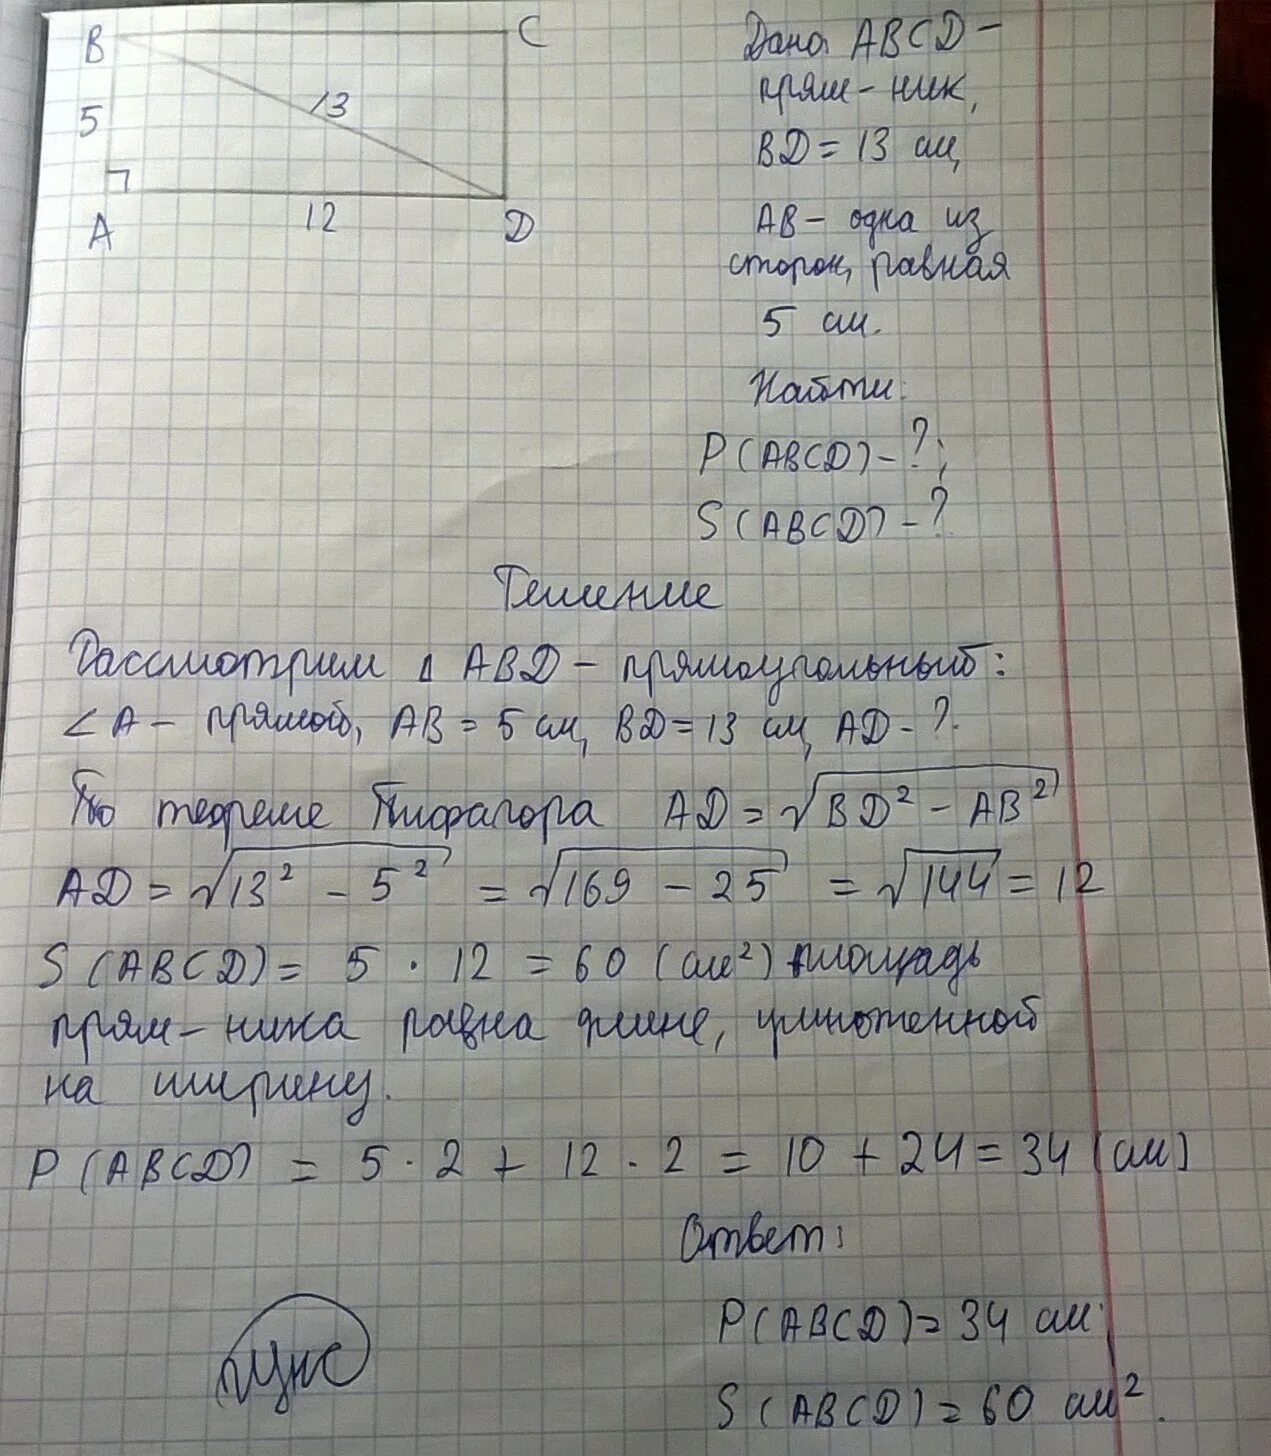 B
C
13
5
A
12
D
Дано: ABCD –
прям-ник,
BD = 13 см,
AB – одна из
сторон, равная
5 см.
Найти:
P(ABCD) – ?;
S(ABCD) – ?
Решение
Рассмотрим Δ ABD – прямоугольный:
∠A – прямой, AB = 5 см, BD = 13 см, AD – ?.
По теореме Пифагора AD = √(BD² – AB²)
AD = √(13² – 5²) = √(169 – 25) = √144 = 12
S (ABCD) = 5 · 12 = 60 (см²) площадь
прям-ника равна длине, умноженной
на ширину.
P (ABCD) = 5 · 2 + 12 · 2 = 10 + 24 = 34 (см)
Ответ:
P(ABCD) = 34 см;
S (ABCD) = 60 см².